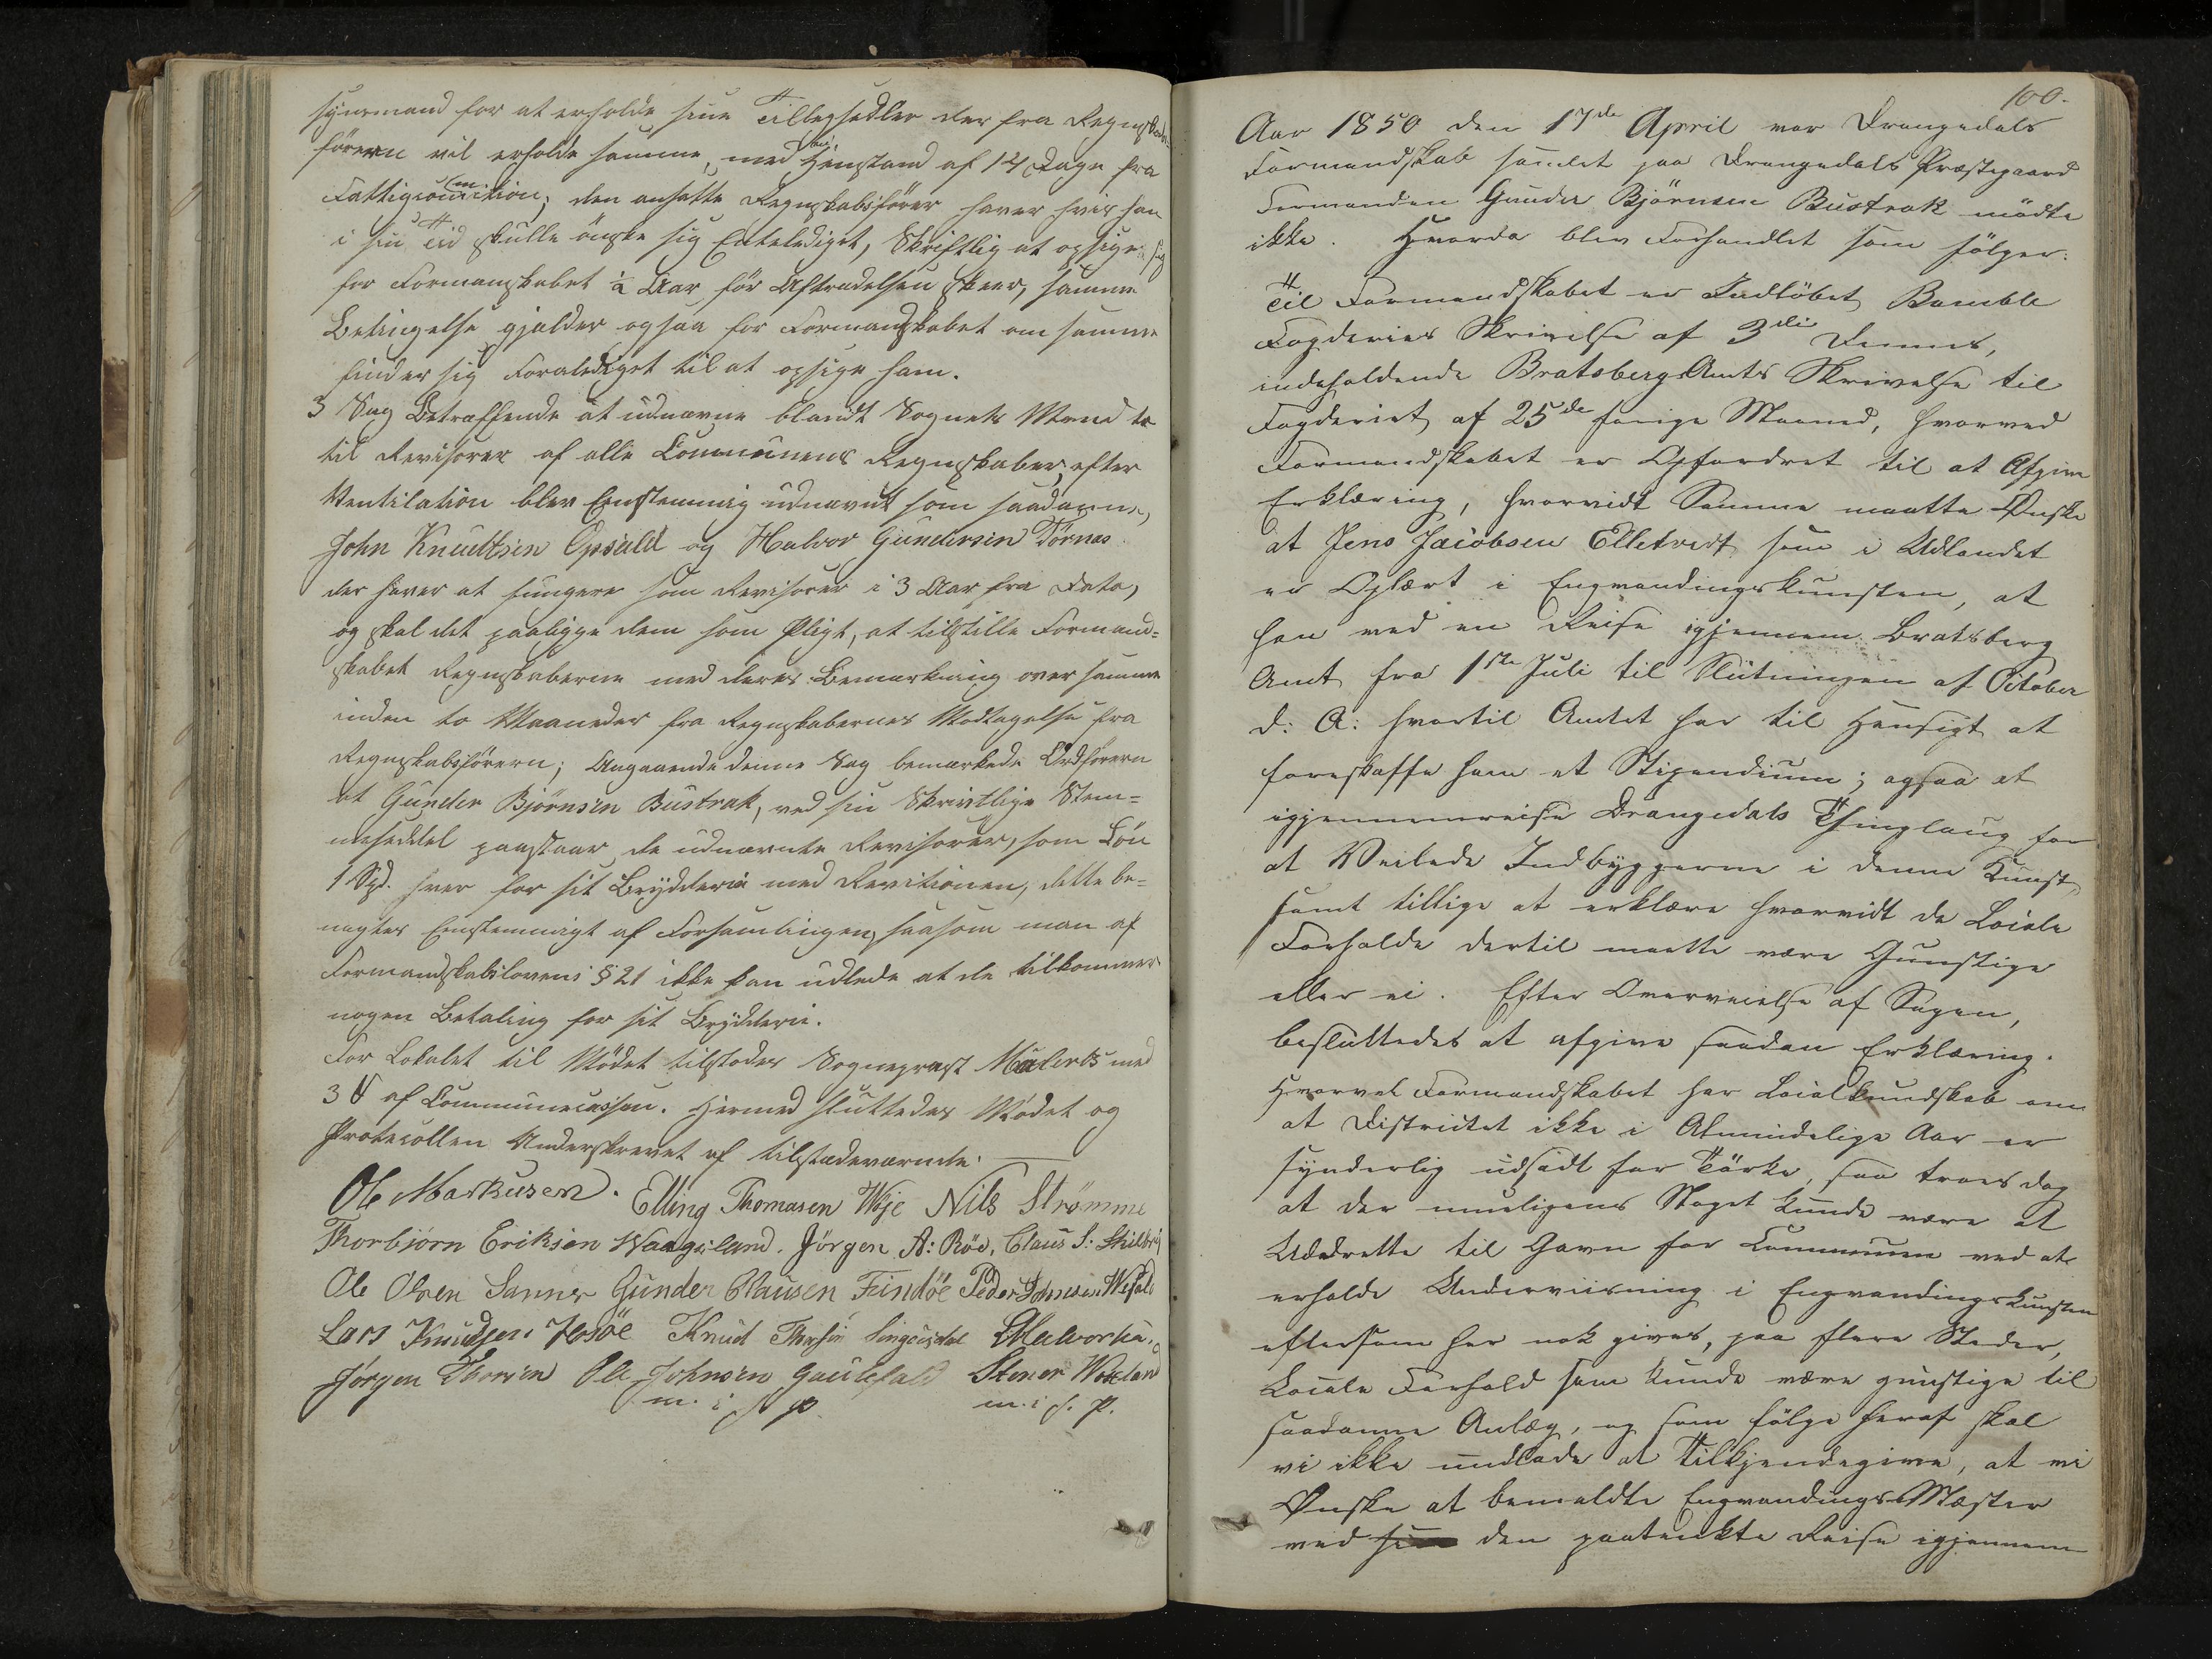 synsmand for at erholde sine Tillegsedler der fra Regnskabs
føreren vil erholde samme, med Henstand af 14 Dage fra
Fattigcommition; den ansatte Regnskabsfører haver hvis han
i sin Tid skulle ønske sig Entelediget, Skriftlig at opsige sig
for Formanskabet ½ Aar før Aftrædelsen skeer, samme
Betingelse gjælder ogsaa for Formandskabet om samme
finder sig Foralediget til at opsige ham.
3 Sag Betræffende at udnævne blandt Sognets Mænd to
til Revisorer af alle Communens Regnskaber, efter
Ventilation blev Enstemmig udnævnt som saadanne,
John Knudtsen Opsald og Halvor Gundersen Tørnes
der haver at fungere som Revisorer i 3 Aar fra Dato,
og skal det paaligge dem som Pligt, at tilstille Formand=
skabet Regnskaberne med deres Bemærkning over samme
inden to Maaneder fra Regnskabernes Modtagelse fra
Regnskabsføreren; Angaaende denne Sag bemærkede Ordføreren
at Gunder Bjørnsen Bustrak, ved sin Skrivtlige Stem=
meseddel paastaar de udnævnte Revisorer, som Løn
1 Spd. hver for sit Brydderie med Revitionen, dette be=
nægtes Enstemmigt af Forsamlingen, saasom man af
Formandskabslovens § 21 ikke kan udlede at de tilkommer
nogen Betaling for sit Brydderie.
For Lokalet til Mødet tilstodes Sogneprest Malerts med
3 af Communecassen. Hermed sluttedes Mødet og
Protocollen Underskrevet af tilstædeværende.
Ole Markusen. Elling Thomasen Woje Nils Strømme
Thorbjørn Eriksen Waagsland. Jørgen A: Röe, Claus S:
Ole Olsen Sannes Gunder Clausen Feindøe Peder Johnsen Wefald
Lars Knudsen Hosöe Knud
Jørgen Thorsen Ole Johnsen Gautefald Stener Woxland
m. i P. m. i P. P.
100.
Aar 1850 den 17de April var Drangedals
Formandskab samlet paa Drangedals Præstegaard
Formanden Gunder Bjørnsen Bustrak mødte
ikke. Hvorda blev Forhandlet som følger:
Til Formandskabet er Indløbet Bamble
Fogderies Skrivelse af 3die Dennes,
indeholdende Bratsberg Amts Skrivelse til
Fogderiet af 25de forige Maaned, hvorved
Formandskabet er Opfordret til at Afgive
Erklæring, hvorvidt Samme maatte Ønske
at Jens Jacobsen Elletvedt som i Udlandet
er Oplært i Engvandingskunsten, at
han ved en Reise igjennem Bratsberg
Amt fra 1ste Juli til Slutningen af October
d: A: hvortil Amtet har til Hensigt at
foreskaffe ham et Stipendium; ogsaa at
igjennemreise Drangedals Thinglaug for
at Veilede Indbyggerne i denne Kunst,
samt tillige at erklære hvorvidt de Locale
Forholde dertil maatte være Gunstige
eller ei. Efter Overveielse af Sagen,
besluttedes at afgive saadan Erklæring.
Hvorvel Formandskabet har Localkundskab om
at Districtet ikke i Almindelige Aar er
synderlig udsadt for Tørke, saa troes dog
at der mueligens Noget kunde være at
Udrette til Gavn for Communen ved at
erholde Underviisning i Engvandingskunsten
eftersom her nok gives, paa flere Steder,
Locale Forhold som kunde være gunstige til
saadanne Anlæg, og som følge heraf skal
vi ikke undlade at tilkjendegive, at vi
Ønske at bemældte Engvandings Mæster
ved den paatænkte Reise igjennem